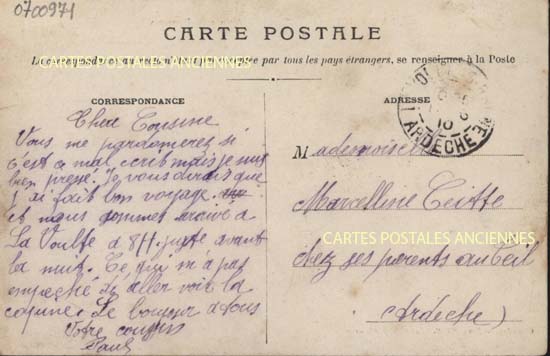 0700971
CARTE POSTALE
La correspondance au recto n'est pas acceptée par tous les pays étrangers, se renseigner à la Poste
CARTES POSTALES ANCIENNES
CORRESPONDANCE
ADRESSE
ARDECHE
10
Chere Cousine
Vous me pardonnerez si
c'est a mal ecrit mais je suis
bien pressé. Je vous dirais que
j'ai fait bon voyage
et nous sommes arrivé a
La Voulte a 8H juste avant
la nuit. Ce qui m'a pas
empeché d'aller voir la
Le bonjour a tous
Votre cousin
Paul
Mademoiselle
Marcelline
CARTES POSTALES ANCIENNES
chez ses parents
Ardèche